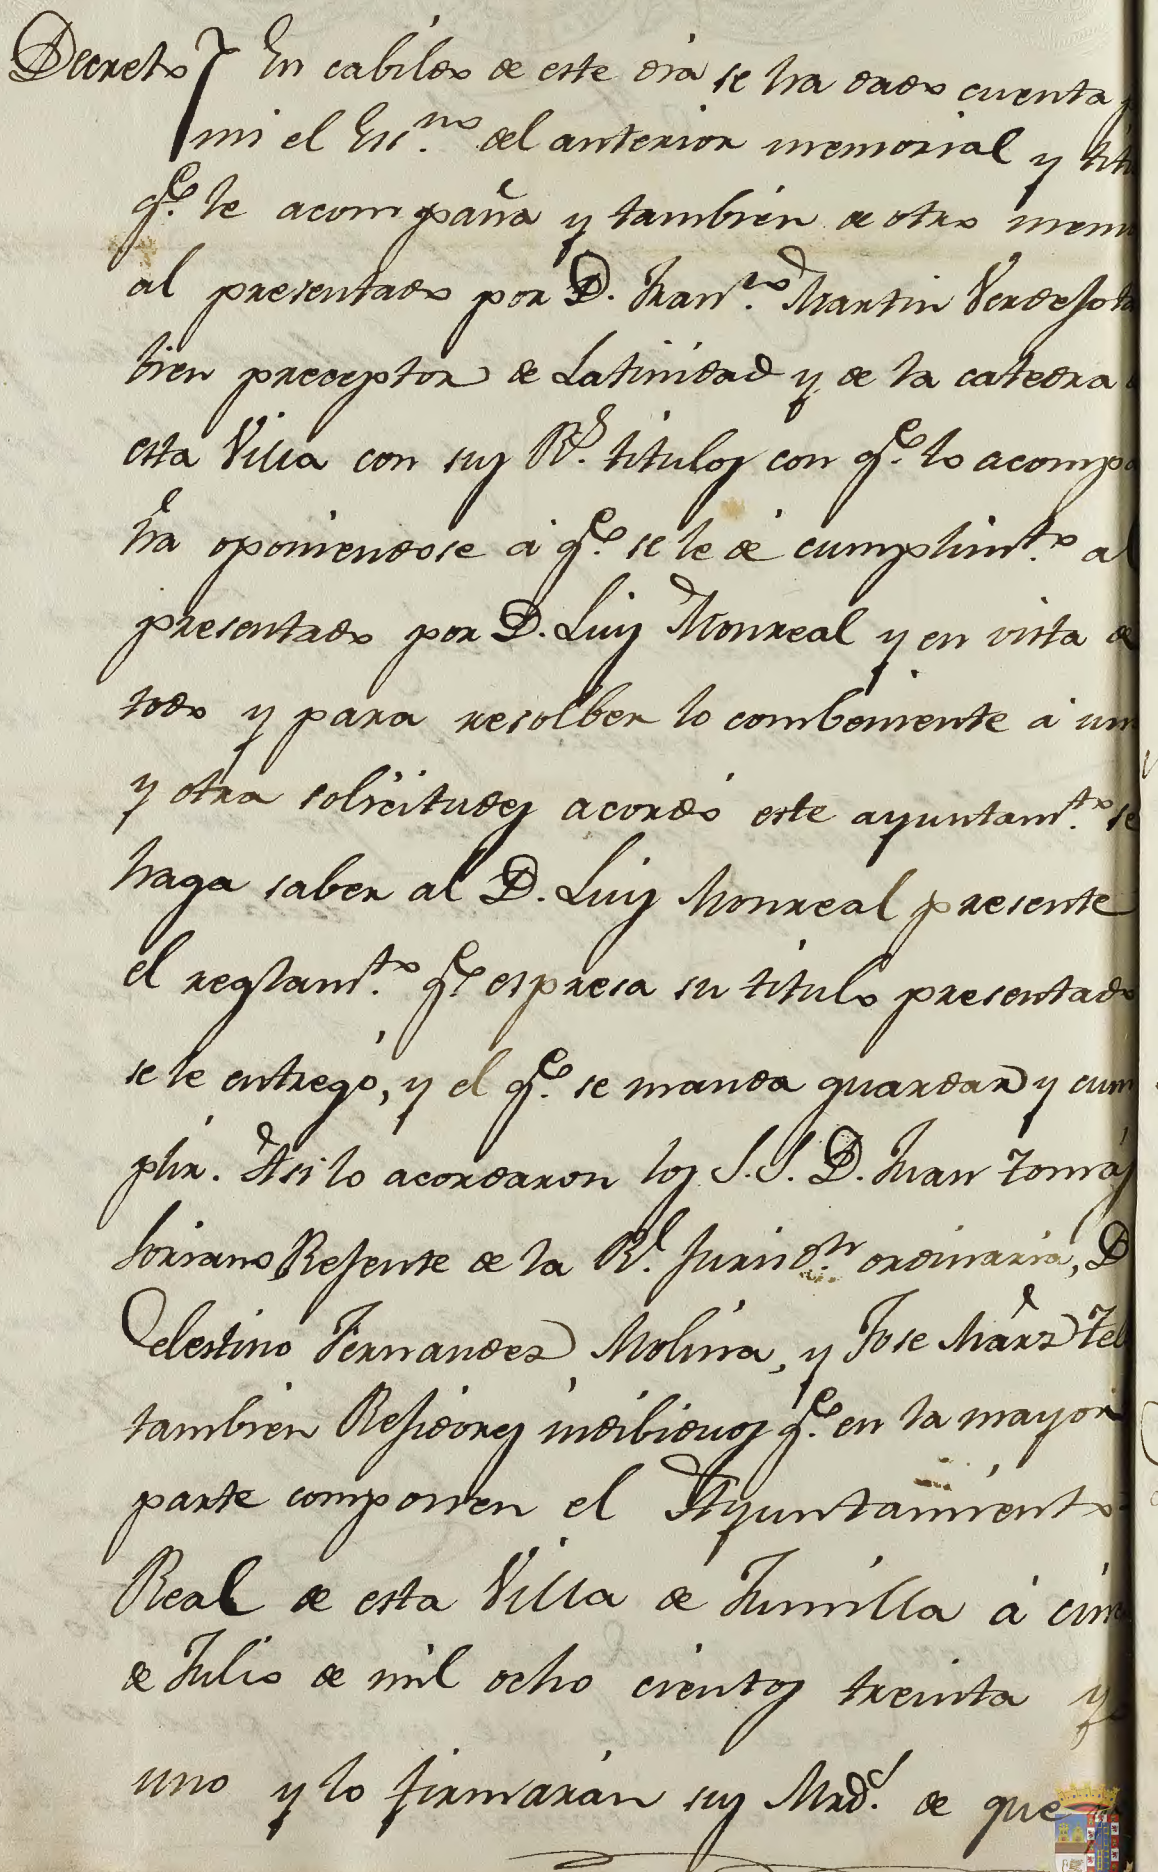 Decreto En cabildo de este dia se ha dado cuenta
mi el Es.no del anterior memorial y
q.e le acompaña y también de otro mem
al presentado por D. Fran.co Martin Verdejo
bien preceptor de Latinidad y de la catedra
esta Villa con sus R.s titulos con q.e lo acompa
ña oponiendose á q.e se le dé cumplim.to al
presentado por D. Luis Monreal y en vista de
todo y para resolber lo combeniente á un
y otra solicitudes acordó este ayuntam.to se
haga saber al D. Luis Monreal presente
el reglam.to q.e espresa su titulo presentado
se le entregó, y el q.e se manda guardar y cum
plir. Asi lo acordaron los S.S. D. Juan Tomás
Soriano Rejente de la R.l Jurisd.on ordinaria, D
Celestino Fernandez Molina, y Jose Marz
también Rejidores indibiduos q.e en la mayor
parte componen el Ayuntamiento
Real de esta Villa de Jumilla á cin
de Julio de mil ocho cientos treinta y
uno y lo firmarán sus Mrd.s de que